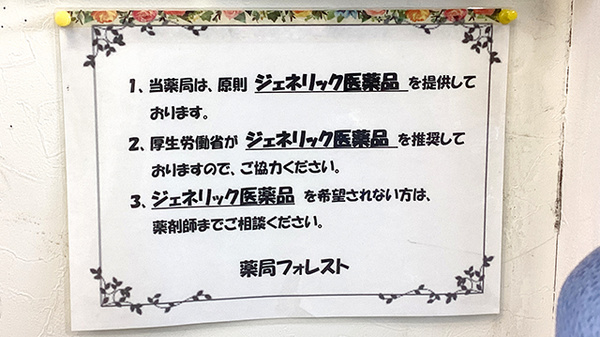 1、当薬局は、原則 ジェネリック医薬品 を提供して
おります。
2、厚生労働省が ジェネリック医薬品 を推奨して
おりますので、ご協力ください。
3、ジェネリック医薬品 を希望されない方は、
薬剤師までご相談ください。
薬局フォレスト